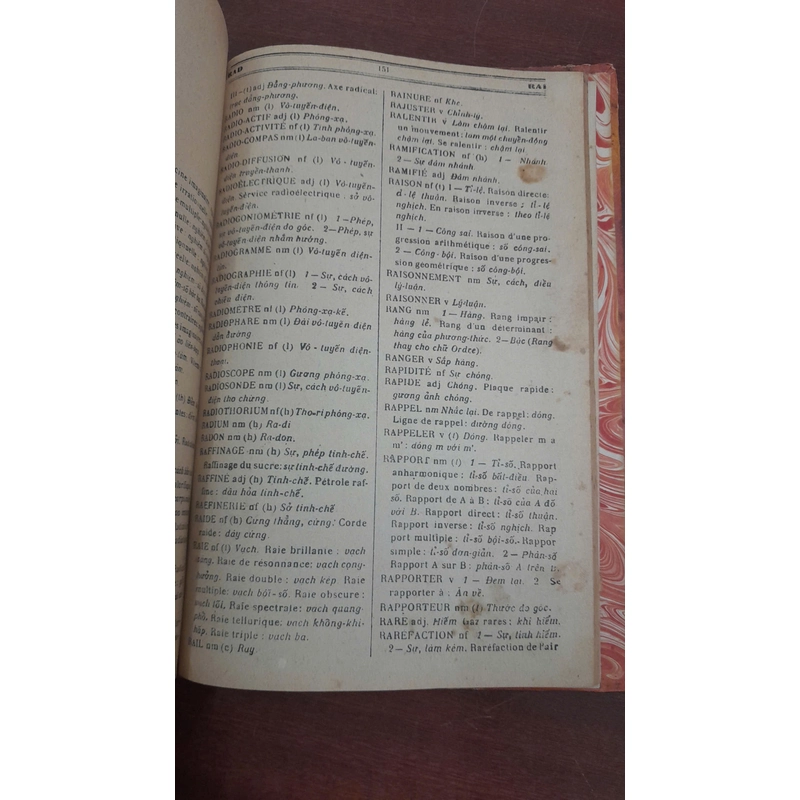 RAD
151
RAI
(l) - (t) adj Đẳng-phương. Axe radical:
trục đẳng-phương.
RADIO nm (l) Vô-tuyến-điện.
RADIO-ACTIF adj (l) Phóng-xạ.
RADIO-ACTIVITÉ nf (l) Tính phóng-xạ.
RADIO-COMPAS nm (l) La-ban vô-tuyến-
điện.
RADIO-DIFFUSION nf (l) Vô-tuyến-
điện truyền-thanh.
RADIOÉLECTRIQUE adj (l) Vô-tuyến-
điện. Service radioélectrique: sở vô-
tuyến-điện.
RADIOGONIOMÉTRIE nf (l) 1-Phép,
vô-tuyến-điện đo góc. 2-Phép, sự
vô-tuyến-điện nhắm hướng.
RADIOGRAMME nm (l) Vô-tuyến điện-
tín.
RADIOGRAPHIE nf (l) 1 - Sự, cách vô-
tuyến-điện thông tin. 2 - Sự, cách
chiếu điện.
RADIOMÈTRE nf (l) Phóng-xạ-kế.
RADIOPHARE nm (l) Đài vô-tuyến điện
dẫn đường
RADIOPHONIE nf (l) Vô-tuyến điện-
thoại.
RADIOSCOPE nm (l) Gương phóng-xạ.
RADIOSONDE nm (l) Sự, cách vô-tuyến-
điện thọ chừng.
RADIOTHORIUM nf (h) Tho-ri phóng-xạ.
RADIUM nm (h) Ra-đi
RADON nm (h) Ra-don.
RAFFINAGE nm (h) Sự, phép tinh-chế.
Raffinage du sucre: sự tinh-chế đường.
RAFFINE adj (h) Tinh-chế. Pétrole raf-
fine: dầu hỏa tinh-chế.
RAFFINERIE nf (h) Sở tinh-chế
RAIDE nf (h) Cưng thẳng, cứng: Corde
raide: dây cứng.
RAIE nf (l) Vạch. Raie brillante: vạch
sáng. Raie de résonnance: vạch cộng-
hưởng. Raie double: vạch kép. Raie
multiple: vạch bội-số. Raie obscure:
vạch tối. Raie spectrale: vạch quang
phổ. Raie tellurique: vạch không-khí-
hấp. Raie triple: vạch ba.
RAIL nm (c) Ray
RAINURE nf Khe.
RAJUSTER v Chỉnh-lý.
RALENTIR v Làm chậm lại. Ralentir
un mouvement: làm một chuyển-động
chậm lại. Se ralentir: chậm lại.
RAMIFICATION nf (h) 1 - Nhánh.
2 - Sự đâm nhánh
RAMIFIÉ adj Đâm nhánh.
RAISON nf (t) 1 - Tỉ-lệ. Raison directe:
tỉ-lệ thuận. Raison inverse: tỉ-lệ
nghịch. En raison inverse: theo tỉ-lệ
nghịch.
11 - 1 - Công sai. Raison d'une pro-
gression arithmétique: số công-sai.
2 - Công-bội. Raison d'une progres-
sion geometrique: số công-bội.
RAISONNEMENT nm Sự, cách, điều
lý-luận.
RAISONNER v Lý-luận.
RANG nm 1 - Hàng. Rang impair:
hàng lẻ. Rang d'un determinant:
hàng của phương-thức. 2 - Bậc (Rang
thay cho chữ Ordre).
RANGER v Sắp hàng.
RAPIDITÉ nf Sự chóng.
RAPIDE adj Chóng. Plaque rapide:
gương ảnh chóng.
RAPPEL nm Nhắc lại. De rappel: dóng.
Ligne de rappel: đường dóng.
RAPPELER v (t) Dóng. Rappeler m a
m': dóng m với m'.
RAPPORT nm (t) 1 - Tỉ-số. Rapport
anharmonique: tỉ-số bất-điều. Rapport
de deux nombres: tỉ-số của hai
số. Rapport de A à B: tỉ-số của A đối
với B. Rapport direct: tỉ-số thuận.
Rapport inverse: tỉ-số nghịch. Rap
port multiple: tỉ-số bội-số. Rapport
simple: tỉ-số đơn-giản. 2 - Phân-số
Rapport A sur B: phân-số A trên B.
RAPPORTER v 1 - Đem lại. 2 Se
rapporter à: Ăn về.
RAPPORTEUR nm (t) Thước đo góc.
RARE adj. Hiếm Gaz rares: khí hiếm.
RAREFACTION nf 1 - Sự, tính hiếm.
2 - Sự, làm kém. Raréfaction de l'air